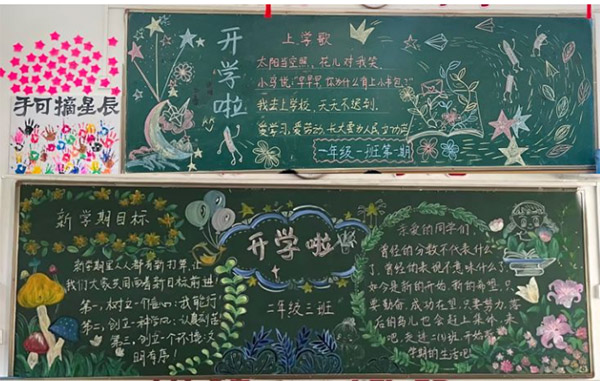 手可摘星辰
开学啦
上学歌
太阳当空照,花儿对我笑
小鸟说:"早早早,你为什么背上小书包?"
我去上学校,天天不迟到,
爱学习,爱劳动,长大要为人民立功劳
一年级一班第一期
新学期目标
新学期里人人都有新打算,让
我们大家共同向着新目标前进!
第一,树立一个信心:我能行!
第二,创立一种学风:认真刻苦
第三,创立一个环境:文
明有序!
开学啦
二年级二班
亲爱的同学们:
曾经的分数不代表什么
了,曾经的表现不意味什么了
如今是新的开始,新的希望,只
要勤奋,成功在望,只要努力,落
后的鸟儿也会赶上集体,来
吧,走进二(2)班,开始新
学期的生活吧